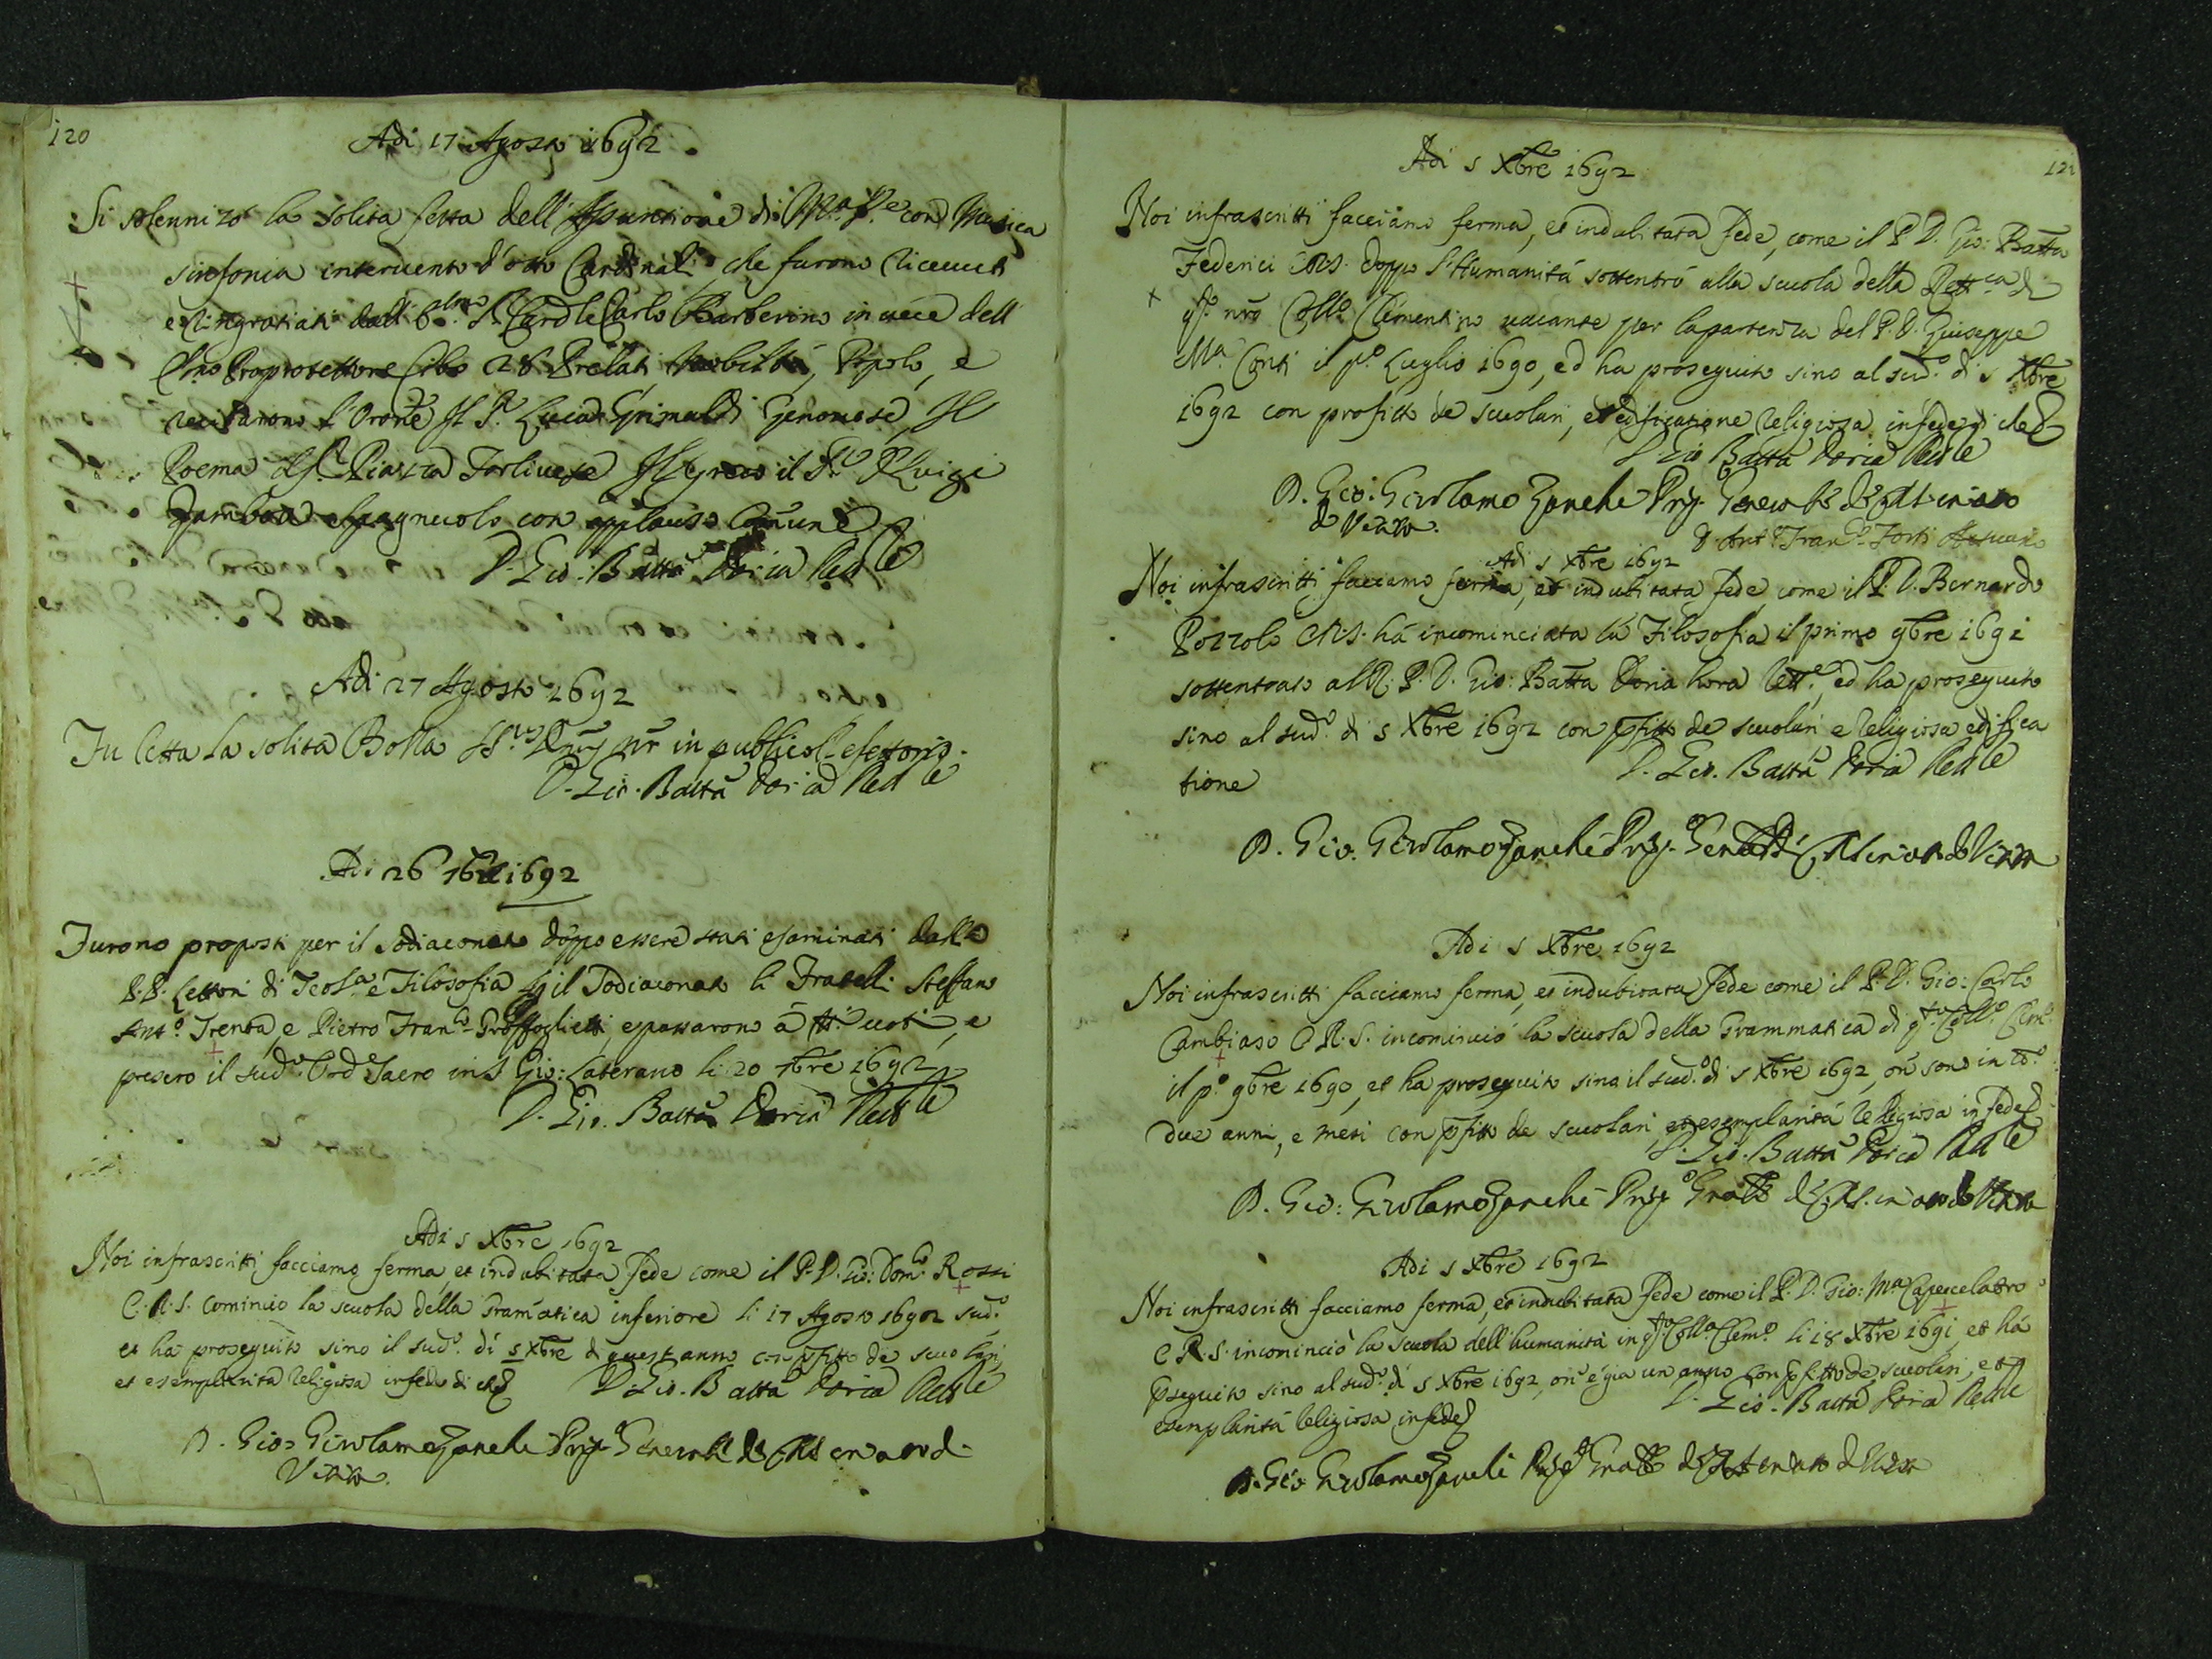 120
Adi 17 Agosto 1692
Si solennizò la solita festa dell'Assuntione di Ma. Ve con Musica
sinfonia intervento d'otto Cardinali che furono ricevuti
e ringratiati dall' Sr. Cardle Carlo Barberino in vece dell
Protettore Cibo 28 Prelati Nobiltà, Popolo, e
recitarono l'Orone Il Sr. Luca Grimaldi Genovese, Il
Poema il Sr. Piazza Forlivese Il greco il Sr. Luigi
Gamboa spagnuolo con applauso comune
D. Gio: Batta Doria Retre
Adi 27 Agosto 1692
Fu letta la solita Bolla in publico refettorio.
D. Gio. Batta Doria Retre
Adi 26 7bre 1692
Furono proposti per il sodiaconato doppo essere stati esaminati dalli
P.P. Lettori di Teola. e Filosofia il Sodiaconato li Fratelli Steffano
Anto. Trenta, e Pietro Franco. e passarono à voti, e
presero il sudo. Ord. Sacro in S. Gio: Laterano li 20 7bre 1692
D. Gio. Batta Doria Retre
Adi 5 Xbre 1692
Noi infrascritti facciamo ferma et indubitata fede come il P. D. Gio: Domco. Rossi
C.R.S. cominciò la scuola della Gramatica inferiore li 17 Agosto 1692 sudo.
et ha proseguito sino il sudo. dì 5 Xbre di quest'anno con pfitto de scuolari
et esemplarità religiosa in fede di che D. Gio. Batta Doria Retre
D. Gio: Girolamo Zanchi Prep. Generale
121
Adi 5 Xbre 1692
Noi infrascritti facciamo ferma, et indubitata fede, come il P. D. Gio: Batta
Federici CRS. doppo l'Humanità sottentrò alla scuola della Rettca. di
qsto. nro Collo. Clementino vacante per la partenza del P. D. Giuseppe
Ma. Conti il po. Luglio 1690, ed ha proseguito sino al sudo. di 5 Xbre
1692 con profitto de scuolari, et edificatione religiosa in fede di che
D. Gio Batta Doria Retre
D. Gio: Girolamo Zanchi Prep. Genera
D. Anto. Franco. Forti
Adi 5 Xbre 1692
Noi infrascritti facciamo ferma, et indubitata fede, come il P. D. Bernardo
Pozzolo CR.S. hà incominciata la Filosofia il primo 9bre 1691
sottentrato al R. P. D. Gio: Batta Doria hora Rett., ed ha proseguito
sino al sudo. di 5 Xbre 1692 con pfitto de scuolari e religiosa edifica
tione
D. Gio. Batta Doria Retre
D. Gio. Girolamo Zanchi Prep. Gen
Adi 5 Xbre 1692
Noi infrascritti facciamo ferma, et indubitata fede come il P. D. Gio: Carlo
Cambiaso C.R.S. incominciò la scuola della Grammatica di qsto. Collo. Clemo.
il po. 9bre 1690, et ha proseguito sino il sudo. dì 5 Xbre 1692, on sono in to.
due anni, e mesi con pfitto de scuolari, et esemplarità religiosa in fede
D. Gio. Batta Doria Retre
D. Gio: Girolamo Zanchi Prep. Gnale
Adi 5 Xbre 1692
Noi infrascritti facciamo ferma, et indubitata fede come il P. D. Gio: Ma. Capecelatro
C.R.S. incominciò la scuola dell'humanità in qsto. Collo. Clemo. li 18 Xbre 1691 et hà
pseguito sino al sudo. di 5 Xbre 1692, on è gia un anno con pfitto de scuolari, et
esemplarità religiosa in fede
D. Gio. Batta Doria Retre
D. Gio Girolamo Zanchi Prep. Gnale